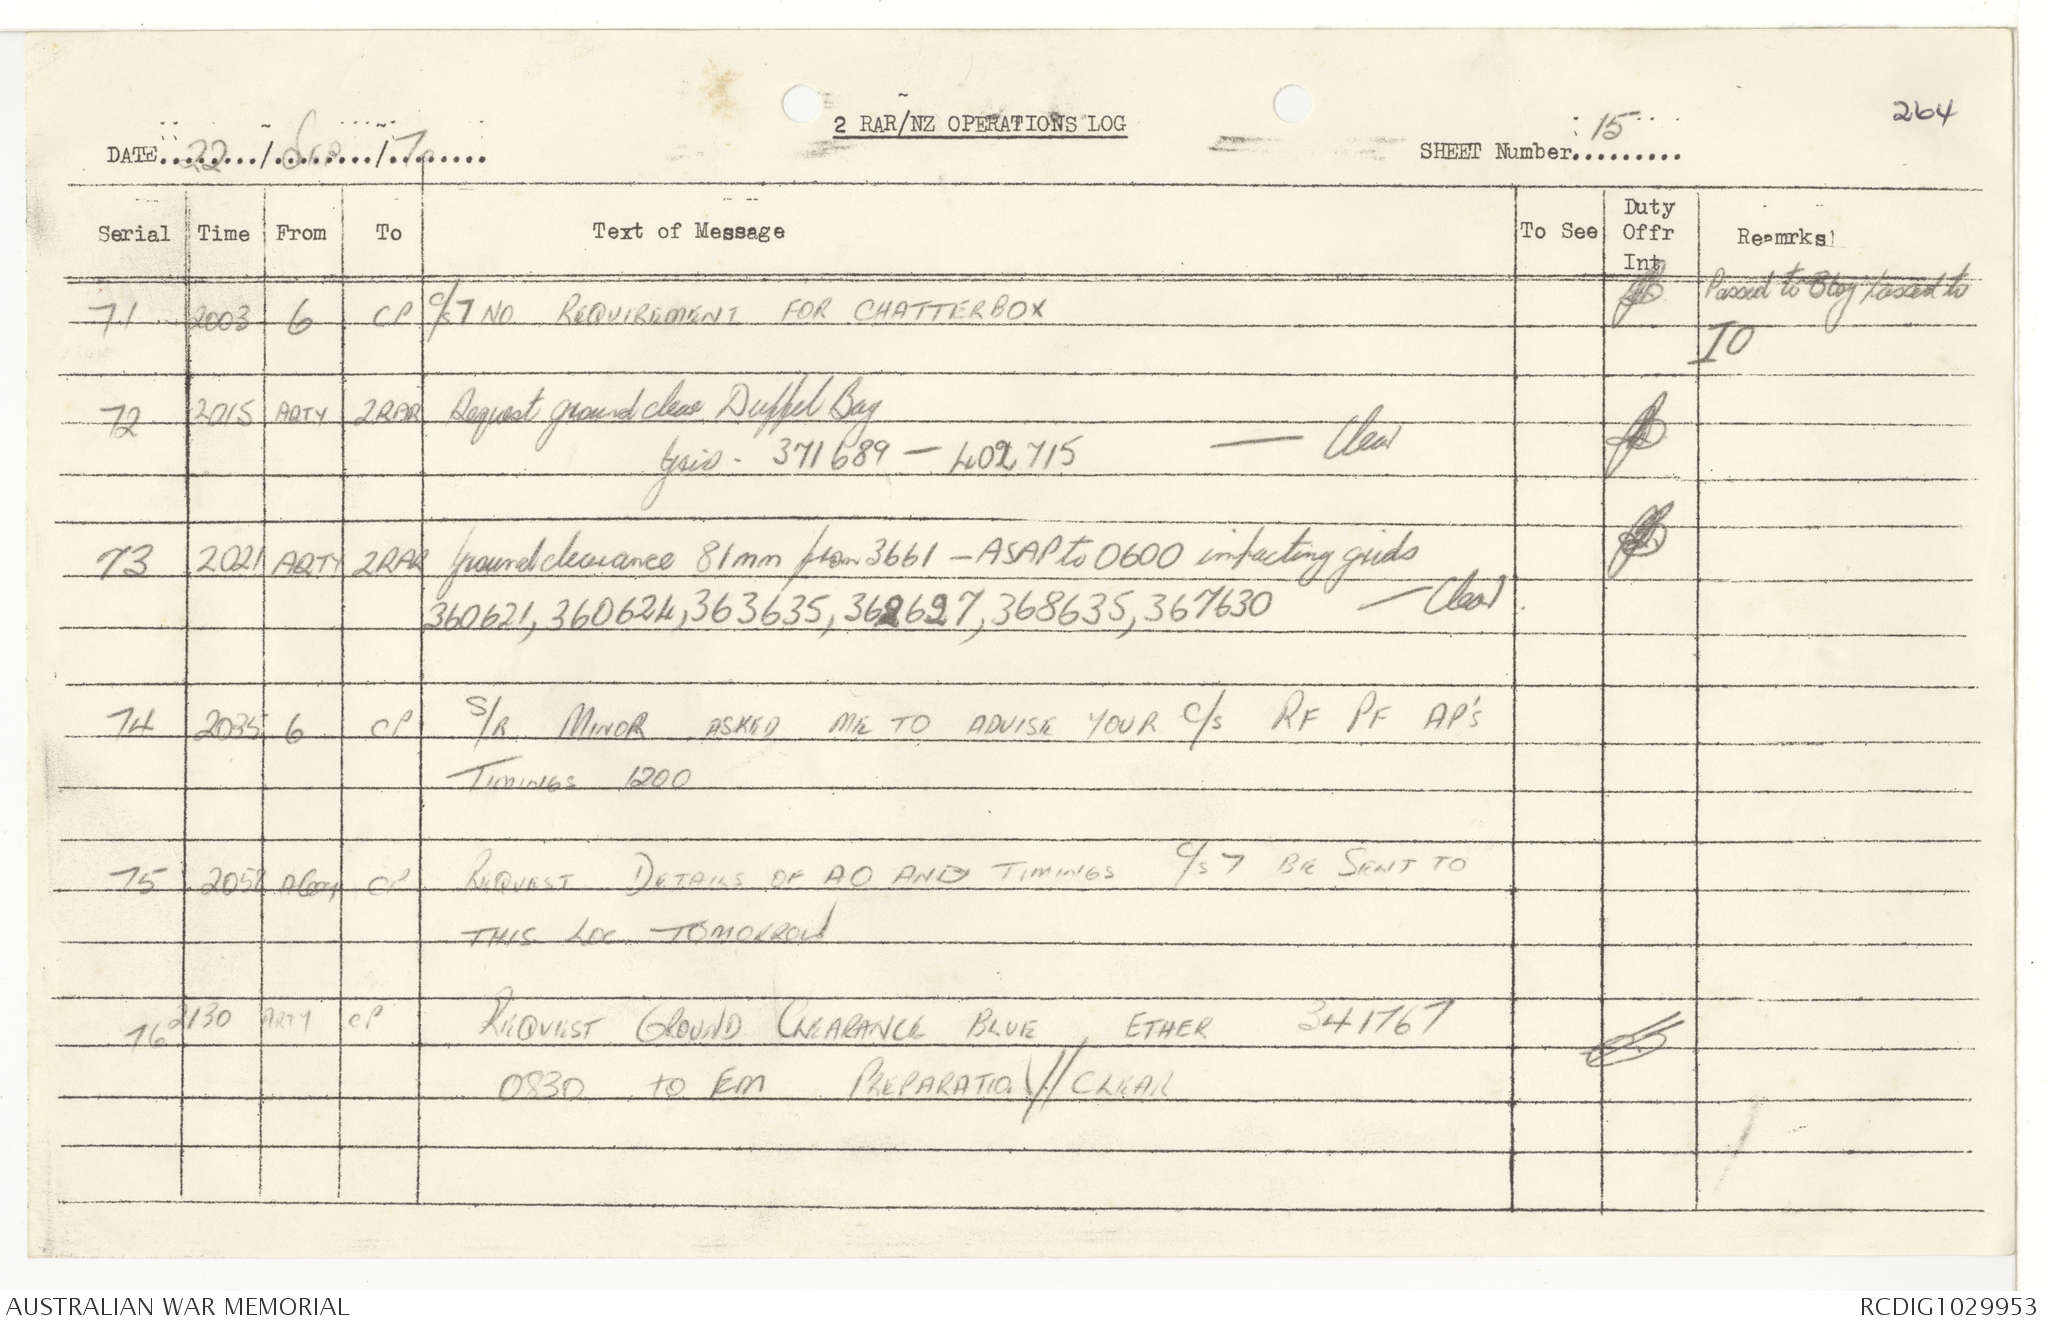 264
2 RAR/NZ OPERATIONS LOG
DATE 22/SEP/70
SHEET Number 15
Serial Time From To Text of Message To See Duty Offr Int Remrks
71 2003 6 CP C/S 7 NO REQUIREMENT FOR CHATTERBOX Passed to Bty passed to
IO
72 2015 ARTY 2RAR Request ground clear Duffel Bag
Grid - 371689 - 402715 - Clear
73 2021 ARTY 2RAR Ground clearance 81mm from 3661 - ASAP to 0600 impacting grids
360621, 360624, 363635, 362627, 368635, 367630 - Clear
74 2035 6 CP S/R MINOR ASKED ME TO ADVISE YOUR C/S RF PF AP's
TIMINGS 1200
75 CP REQUEST DETAILS OF AO AND TIMINGS C/S 7 BE SENT TO
THIS LOC TOMORROW
76 2130 ARTY CP REQUEST GROUND CLEARANCE BLUE ETHER 341767
0830 to EM PREPARATION // CLEAR
AUSTRALIAN WAR MEMORIAL
RCDIG1029953